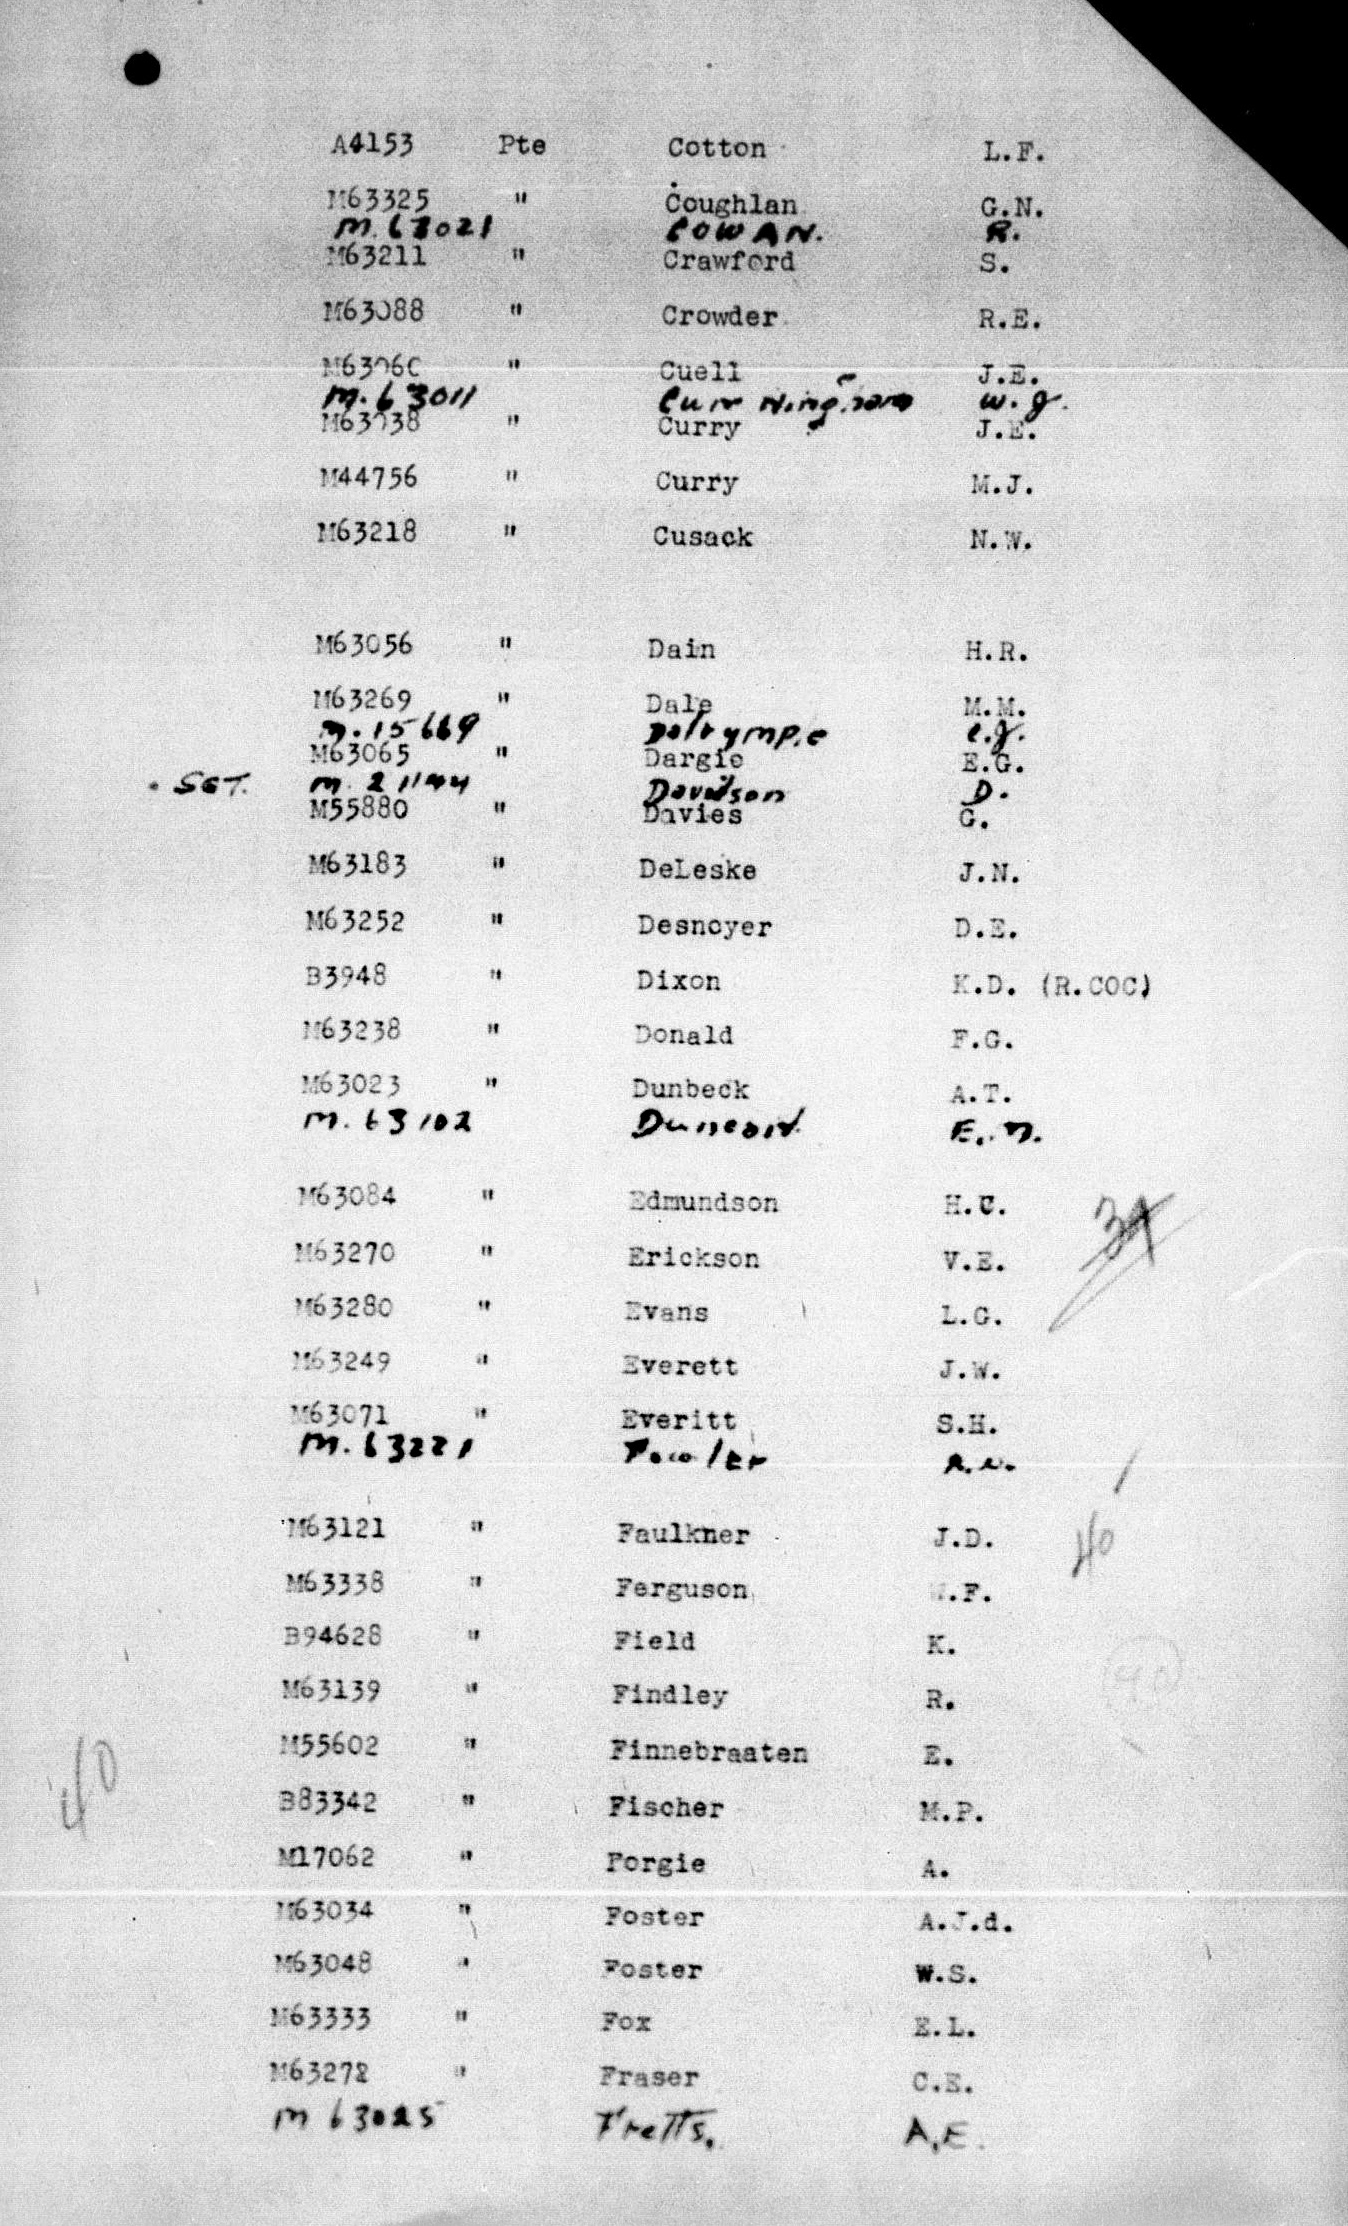 A4153 Pte Cotton L.F.
M63325 " Coughlan G.N.
M.63021 COWAN. R.
M63211 " Crawford S.
M63088 " Crowder R.E.
M63060 " Cuell J.E.
M.63011 Cunningham W.J.
M63038 " Curry J.E.
M44756 " Curry M.J.
M63218 " Cusack N.W.
M63056 " Dain H.R.
M63269 " Dale M.M.
M.15669 Dalrymple C.J.
M63065 " Dargie E.G.
SGT. M 21144 Davidson D.
M55880 " Davies G.
M63183 " DeLeske J.N.
M63252 " Desnoyer D.E.
B3948 " Dixon K.D. (R.COC)
M63238 " Donald F.G.
M63023 " Dunbeck A.T.
M.63102 Duncan E.M.
M63084 " Edmundson H.C.
34
M63270 " Erickson V.E.
M63280 " Evans L.G.
M63249 " Everett J.W.
M63071 " Everitt S.H.
M.63221 Fowler
M63121 " Faulkner J.D.
40
M63338 " Ferguson W.F.
B94628 " Field K.
M63139 " Findley R.
M55602 " Finnebraaten E.
40
B83342 " Fischer M.P.
M17062 " Forgie A.
M63034 " Foster A.J.d.
M63048 " Foster W.S.
M63333 " Fox E.L.
M63272 " Fraser C.E.
M 63025 Fretts. A.E.